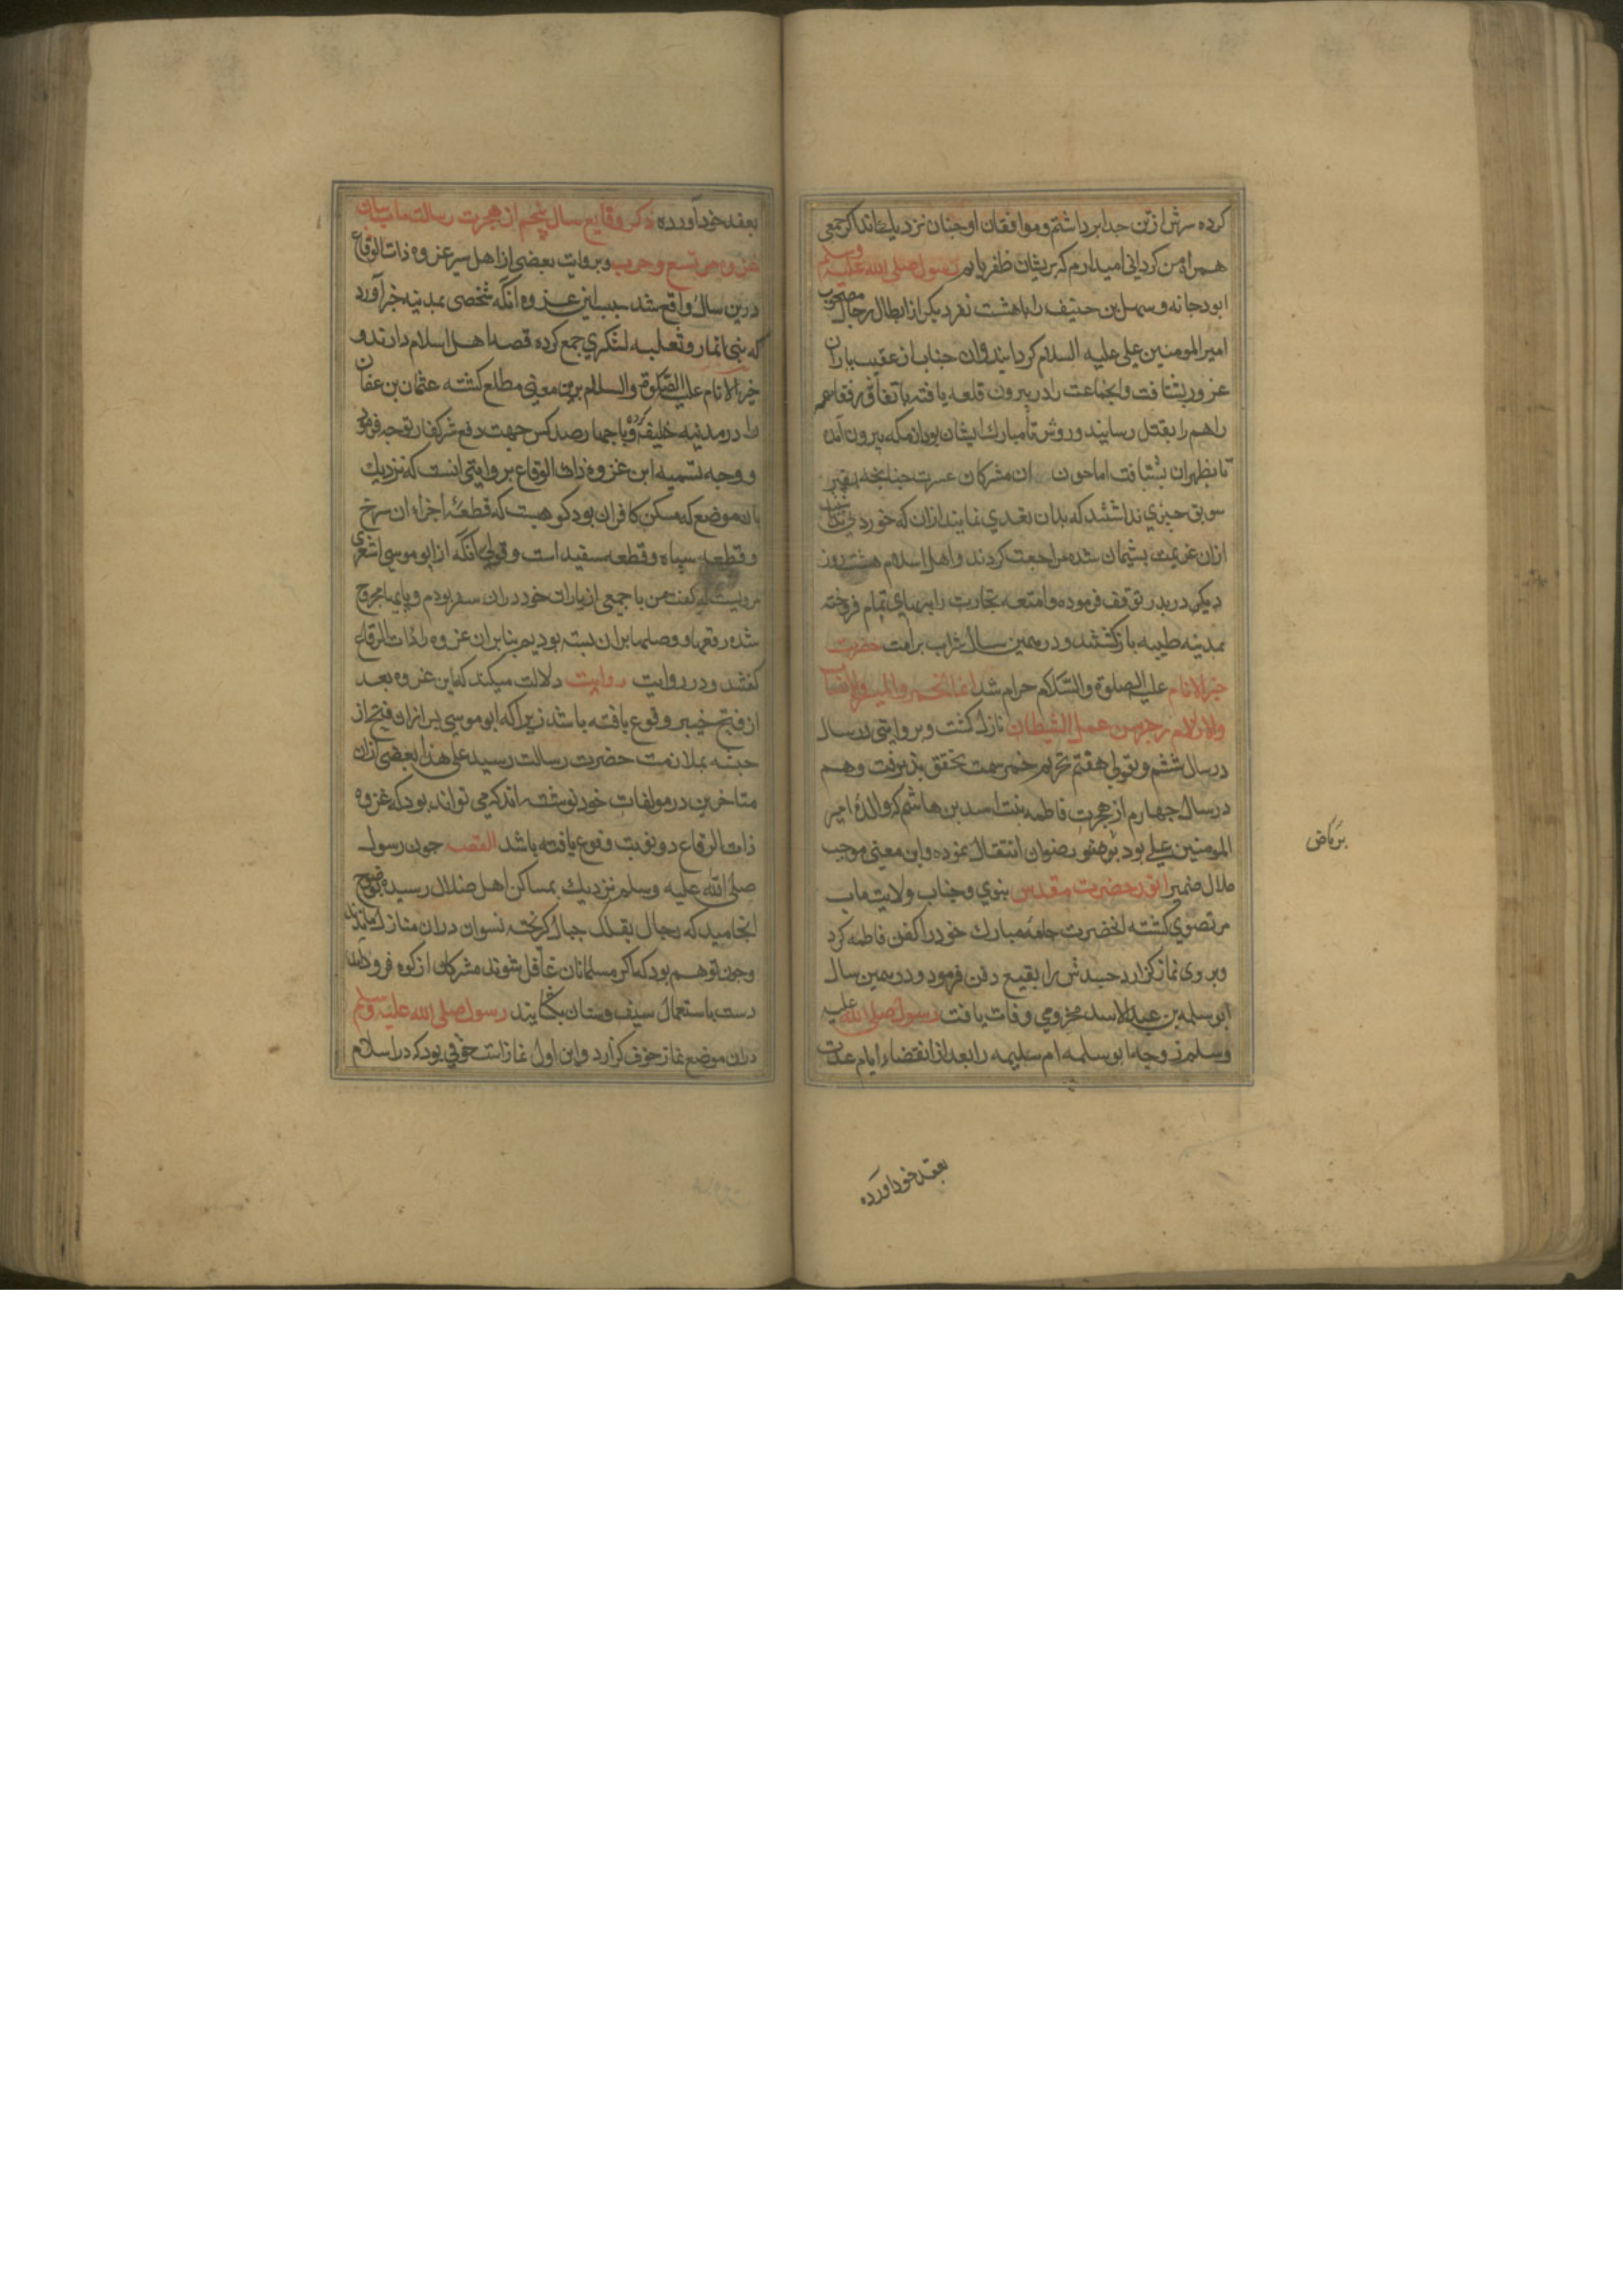 کرده سرش از تن جدا برداشتم و موافقان او جنان نزدیك‌اند اکر جمعی
همراه من کردانی امیدارم که بریشان ظفر یابم رسول صلی الله علیه وسلم
ابودجانه و سهل بن حنیف را با هشت نفر دیکر از ابطال رجال مصحوب
امیرالمومنین علی علیه السلام کردانیدند وان جناب از عقیب یاران
عزور بشتافت وانجماعت را در بیرون قلعه یافته باتفاق رفقا همه
را هم را بقتل رسانیدند و
تا بظهران بشتافت اما جون ان مشرکان عسرت جنانجه بغیر
سویق جیزی نداشتند که بدان تغدی نمایند ازان که خورد
ازان عزیمت بشیمان شده مراجعت کردند و اهل اسلام هشت روز
دیکر در بدر توقف فرموده وامتعه تجارت را ببهای تمام فروخته
بمدینه طیبه باز کشتند و در همین سال شراب بر امت حضرت
خیرالانام علیه الصلوة والسلام حرام شد انما الخمر والمیسر والانصاب
والازلام رجس من عمل الشیطان نازل کشت و بروایتی در سال
در سال ششم و بقولی هفتم تحریم خمر سمت تحقق بذیرفت وهم
در سال جهارم از هجرت فاطمه بنت اسد بن هاشم که والدۀ امیر
المومنین علی بود بروضۀ رضوان انتقال نموده واین معنی موجب
ملال ضمیر انور حضرت مقدس نبوی و جناب ولایت ماب
مرتضوی کشته انحضرت جامۀ مبارك خود را کفن فاطمه کرد
و بر وی نماز کزارد جسدش را ببقیع دفن فرمود و در همین سال
ابو سلمه بن عبدالاسد مخزومی وفات یافت رسول صلی الله علیه
وسلم زوجه ابو سلمه ام سلیمه را بعد از انقضاء ایام عدت
بعقد خود آورده
بعقد خود آورده ذکر وقایع سال پنجم از هجرت رسالت ماب
و بروایت بعضی از اهل سیر غزوه ذات الرقاع
درین سال واقع شد سبب این غزوه انکه شخصی بمدینه خبر آورد
که بنی انمار و ثعلبه لشکری جمع کرده قصد اهل اسلام دارند و
خیرالانام علیه الصلوة والسلام برین معنی مطلع کشته عثمان بن عفان
را در مدینه خلیفه کرده و با جهارصد کس جهت دفع شر کفار توجه فرمود
و وجه تسمیه این غزوه ذات الرقاع بروایتی انست که نزدیك
بان موضع که مسکن کافران بود کوهیست که قطعۀ اجزاء ان سرخ
و قطعه سیاه و قطعه سفید است و قولی انکه از ابو موسی اشعری
مرویست که کفت من با جمعی از یاران خود دران سفر بودم و پایها مجروح
شده رقعها و وصلها بران بسته بودیم بنابران غزوه را ذات الرقاع
کفتند و در روایت روایت دلالت میکند که این غزوه بعد
از فتح خیبر وقوع یافته باشد زیرا که ابو موسی بس ازان فتح از
حبشه بملازمت حضرت رسالت رسید علی هذا بعضی ازان
متاخرین در مولفات خود نوشته‌اند که می تواند بود که غزوه
ذات الرقاع دو نوبت وقوع یافته باشد القصه جون رسول
صلی الله علیه وسلم نزدیك بمساکن اهل ضلال رسیده بوضوح
انجامید که رجال بقلل جبال کریخته نسوان دران منازل مانده‌اند
وجون توهم بود که اکر مسلمانان غافل شوند مشرکان از کوه فرود آمده
دست باستعمال سیف و سنان بکشایند رسول صلی الله علیه وسلم
دران موضع نماز خوف کزارد واین اول نماز است خوفی بود که در اسلام